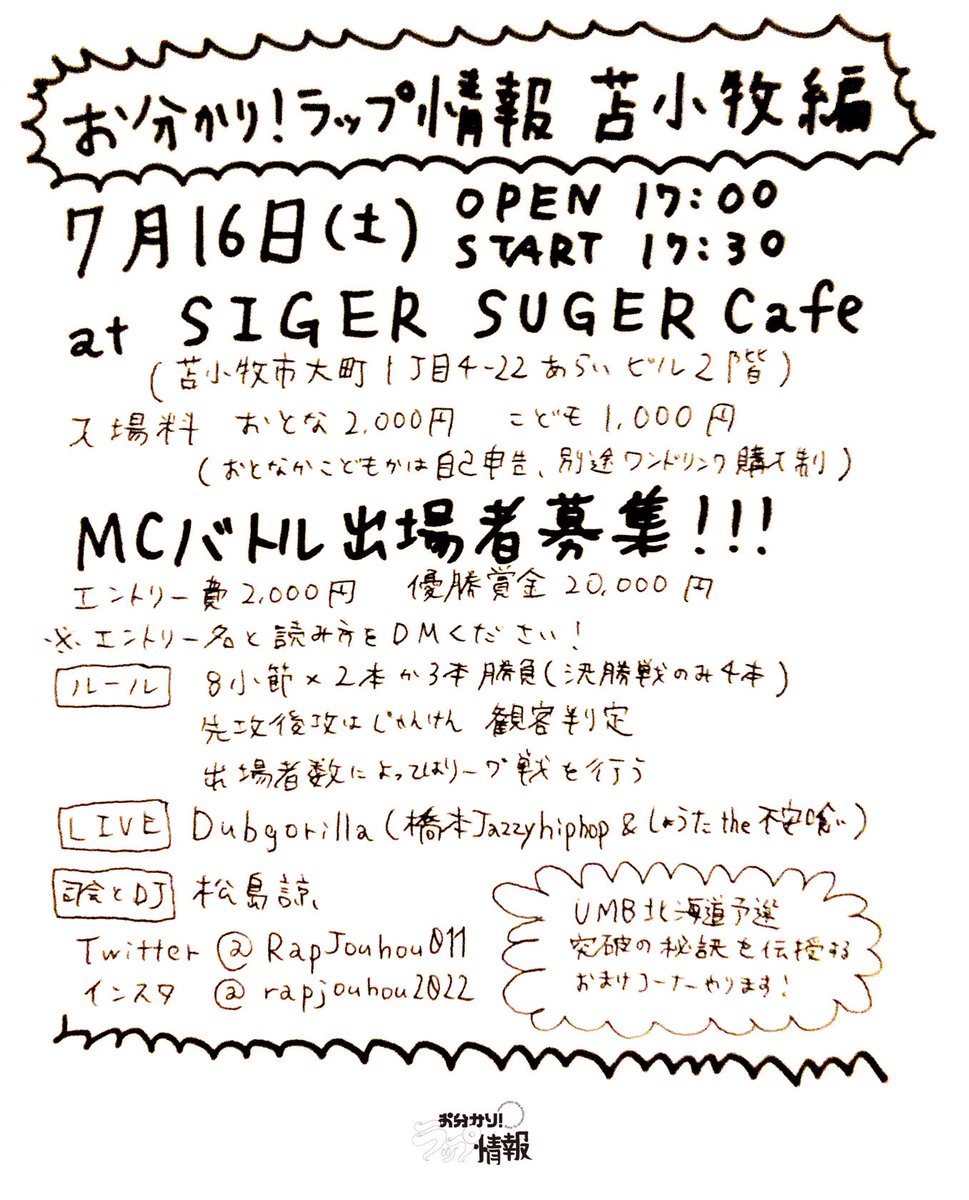 お分かり！ラップ情報 苫小牧編
7月16日(土) OPEN 17:00
START 17:30
at SIGER SUGER Cafe
(苫小牧市大町1丁目4-22あらいビル2階)
入場料 おとな2,000円 こども1,000円
(おとなかこどもかは自己申告、別途ワンドリンク購入制)
MCバトル出場者募集!!!
エントリー費2,000円 優勝賞金20,000円
※エントリー名と読み方をDMください!
ルール 8小節×2本か3本勝負(決勝戦のみ4本)
先攻後攻はじゃんけん 観客判定
出場者数によってはリーグ戦を行う
LIVE Dubgorilla (橋本Jazzyhiphop & しょうた the 不安喰い)
司会とDJ 松島諒
Twitter @RapJouhou011
インスタ @rapjouhou2022
UMB北海道予選
突破の秘訣を伝授する
おまけコーナーやります!
お分かり!
ラップ情報